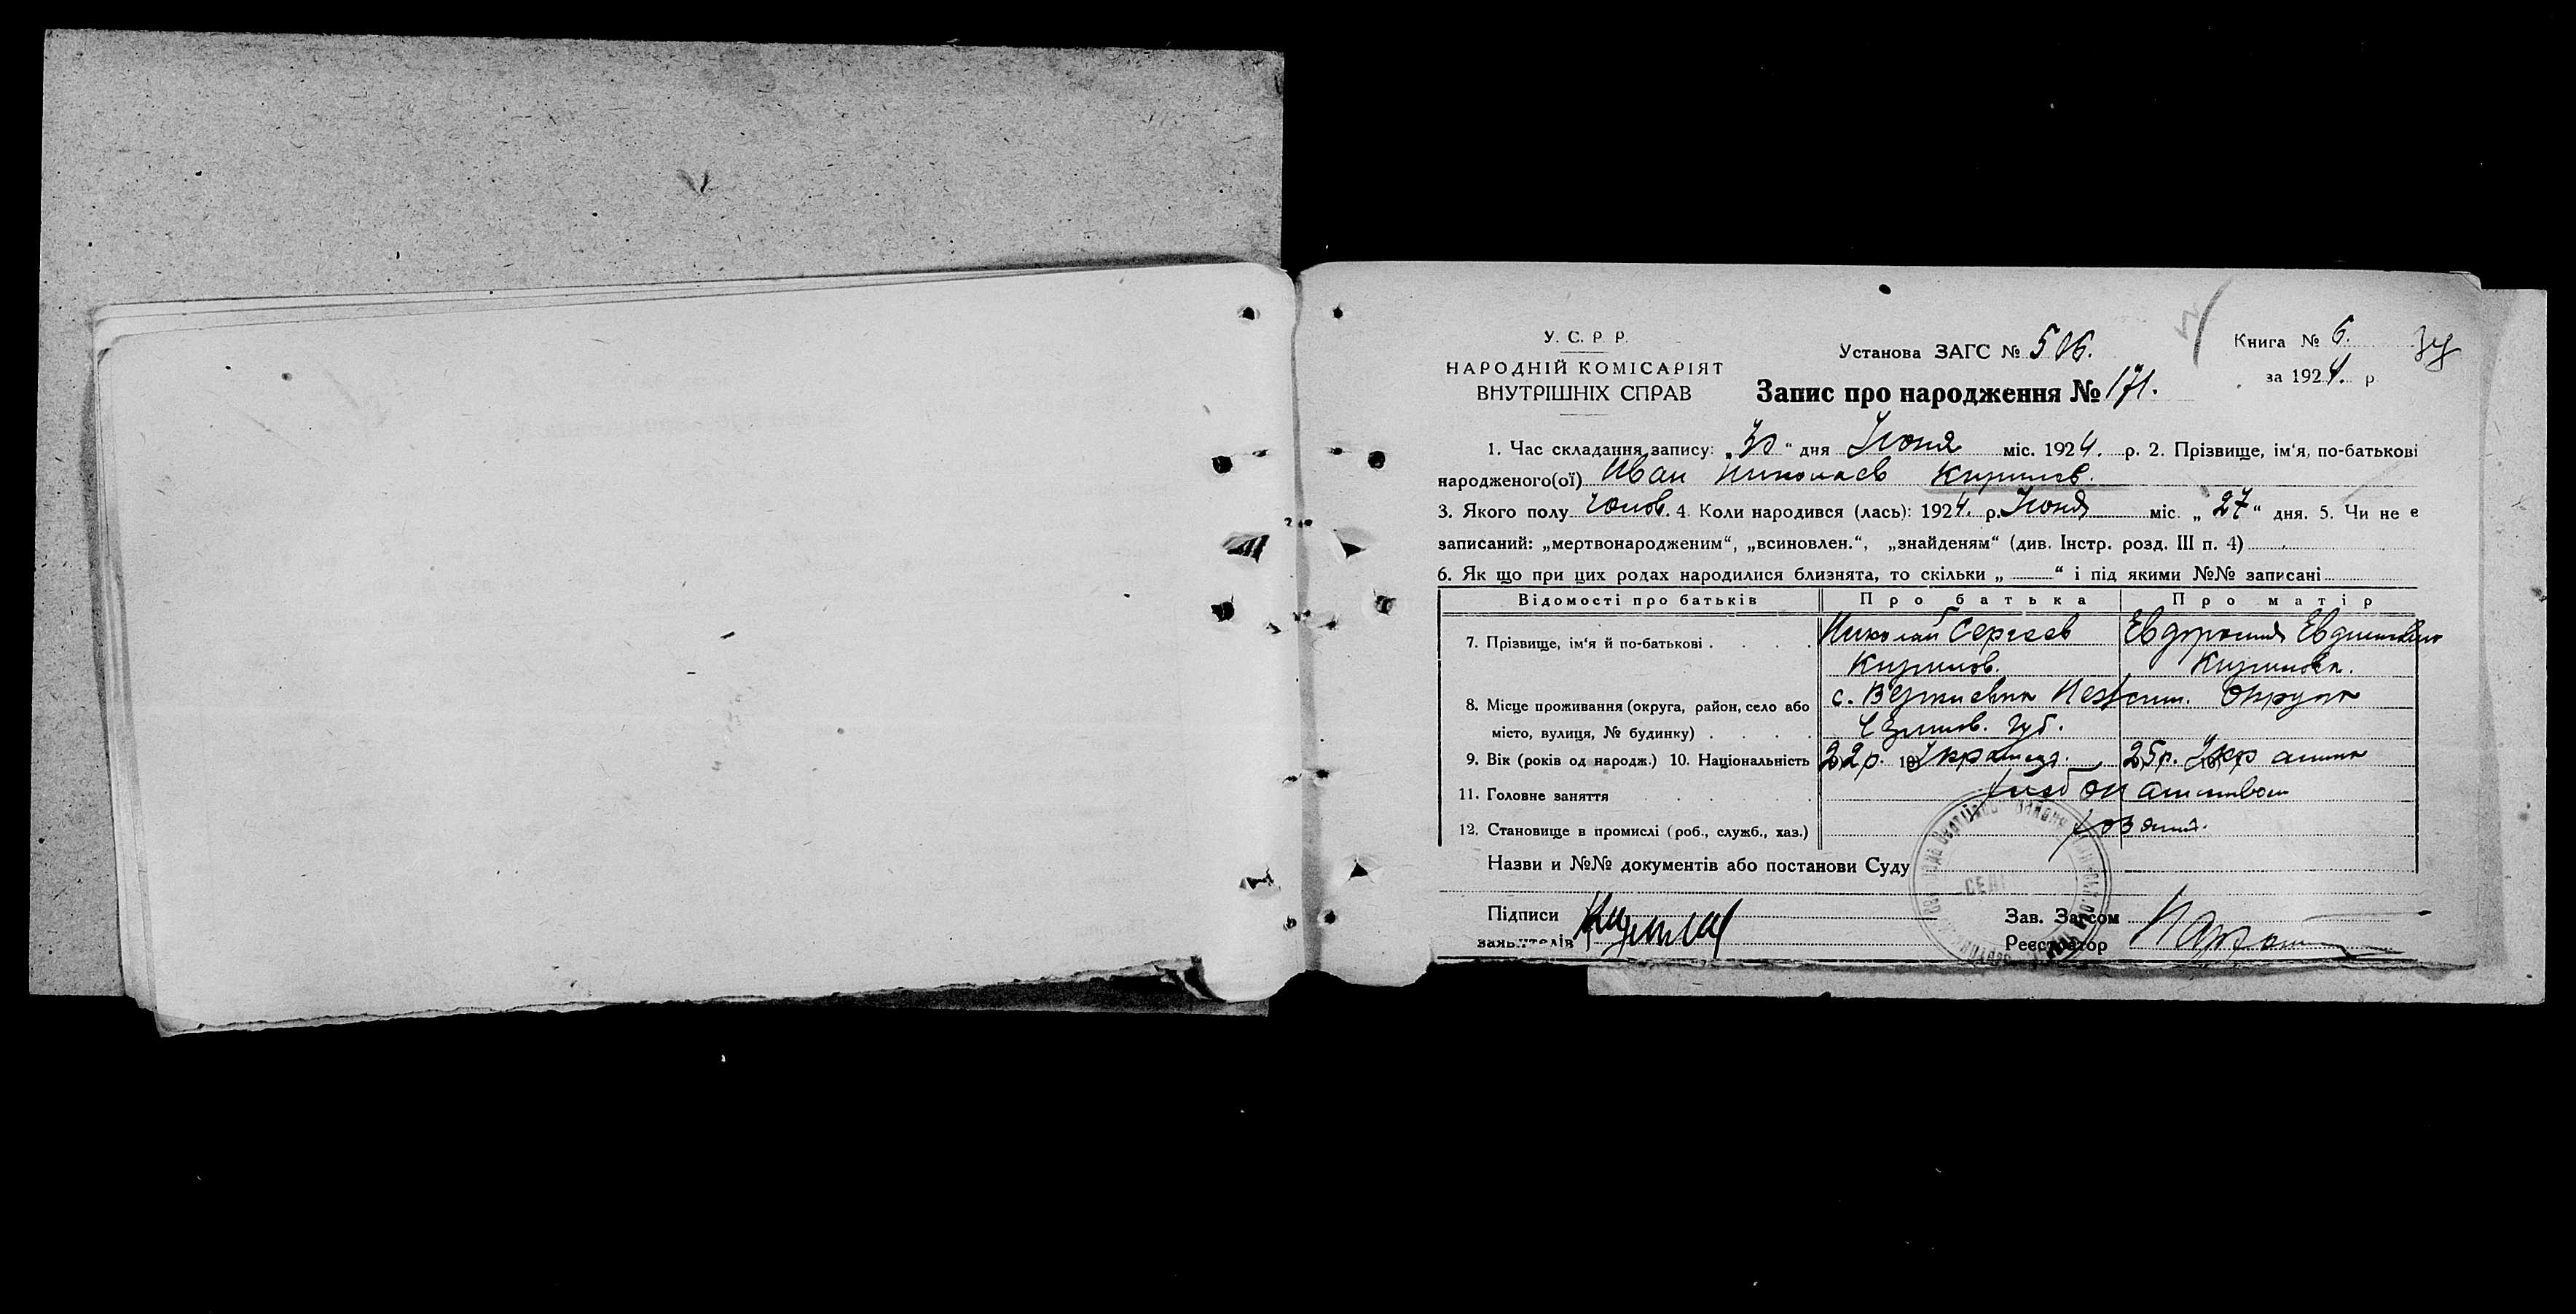 У. С. Р. Р.
НАРОДНІЙ КОМІСАРІЯТ
ВНУТРІШНІХ СПРАВ
Установа ЗАГС № 506.
Запис про народження № 171.
Книга № 6.
за 1924. р
1. Час складання запису: „30“ дня Июня міс. 1924. р. 2. Прізвище, ім'я, по-батькові
народженого(ої) Иван Николаев Кирилов.
3. Якого полу чолов. 4. Коли народився (лась): 1924. р. Июня міс. „27“ дня. 5. Чи не є
записаний: „мертвонародженим“, „всиновлен.“, „знайденям“ (див. Інстр. розд. III п. 4)
6. Як що при цих родах народилися близнята, то скільки „ “ і під якими №№ записані
Відомості про батьків Про батька Про матір
7. Прізвище, ім'я й по-батькові . . . . Николай Сергеев
Кирилов. Кирилова.
8. Місце проживання (округа, район, село або с. Округа
місто, вулиця, № будинку) . . . . губ.
9. Вік (років од народж.) 10. Національність 22р. 10 25р.
11. Головне заняття
12. Становище в промислі (роб., служб., хаз.)
Назви и №№ документів або постанови Суду
Підписи
заявителів
Зав. Загсом
Реєстратор